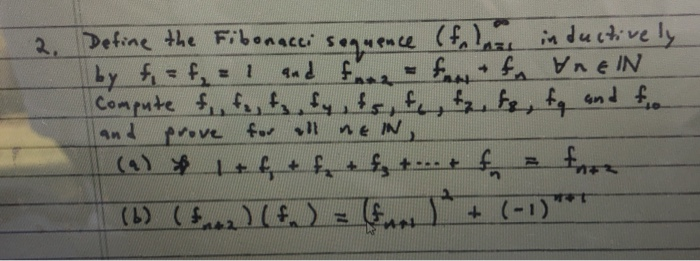 2. Define the Fibonacci sequence (fₙ)ₙ₌₁^∞ inductively
by f₁ = f₂ = 1 and fₙ₊₂ = fₙ₊₁ + fₙ ∀n∈ℕ
Compute f₁, f₂, f₃, f₄, f₅, f₆, f₇, f₈, f₉ and f₁₀
and prove for all n∈ℕ,
(a) 1 + f₁ + f₂ + f₃ + ... + fₙ = fₙ₊₂
(b) (fₙ₊₂)(fₙ) = (fₙ₊₁)² + (-1)ⁿ⁺¹